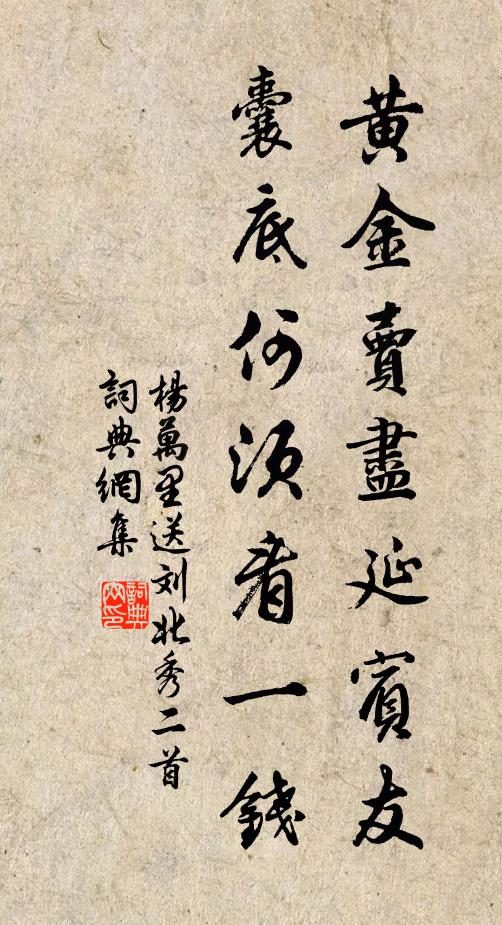 黄金賣盡延賓友
囊底何須着一錢
楊萬里送刘北秀二首
詞典網集
詞典网印